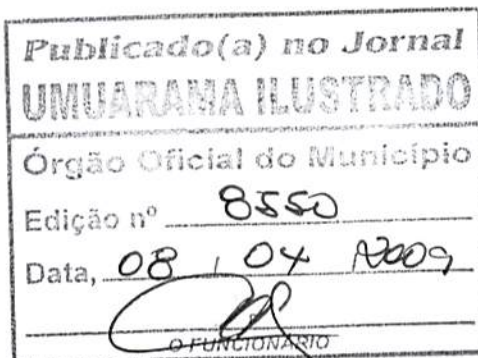 Publicado(a) no Jornal
UMUARAMA ILUSTRADO
Órgão Oficial do Município
Edição nº 8550
Data, 08 / 04 / 2009
O FUNCIONÁRIO